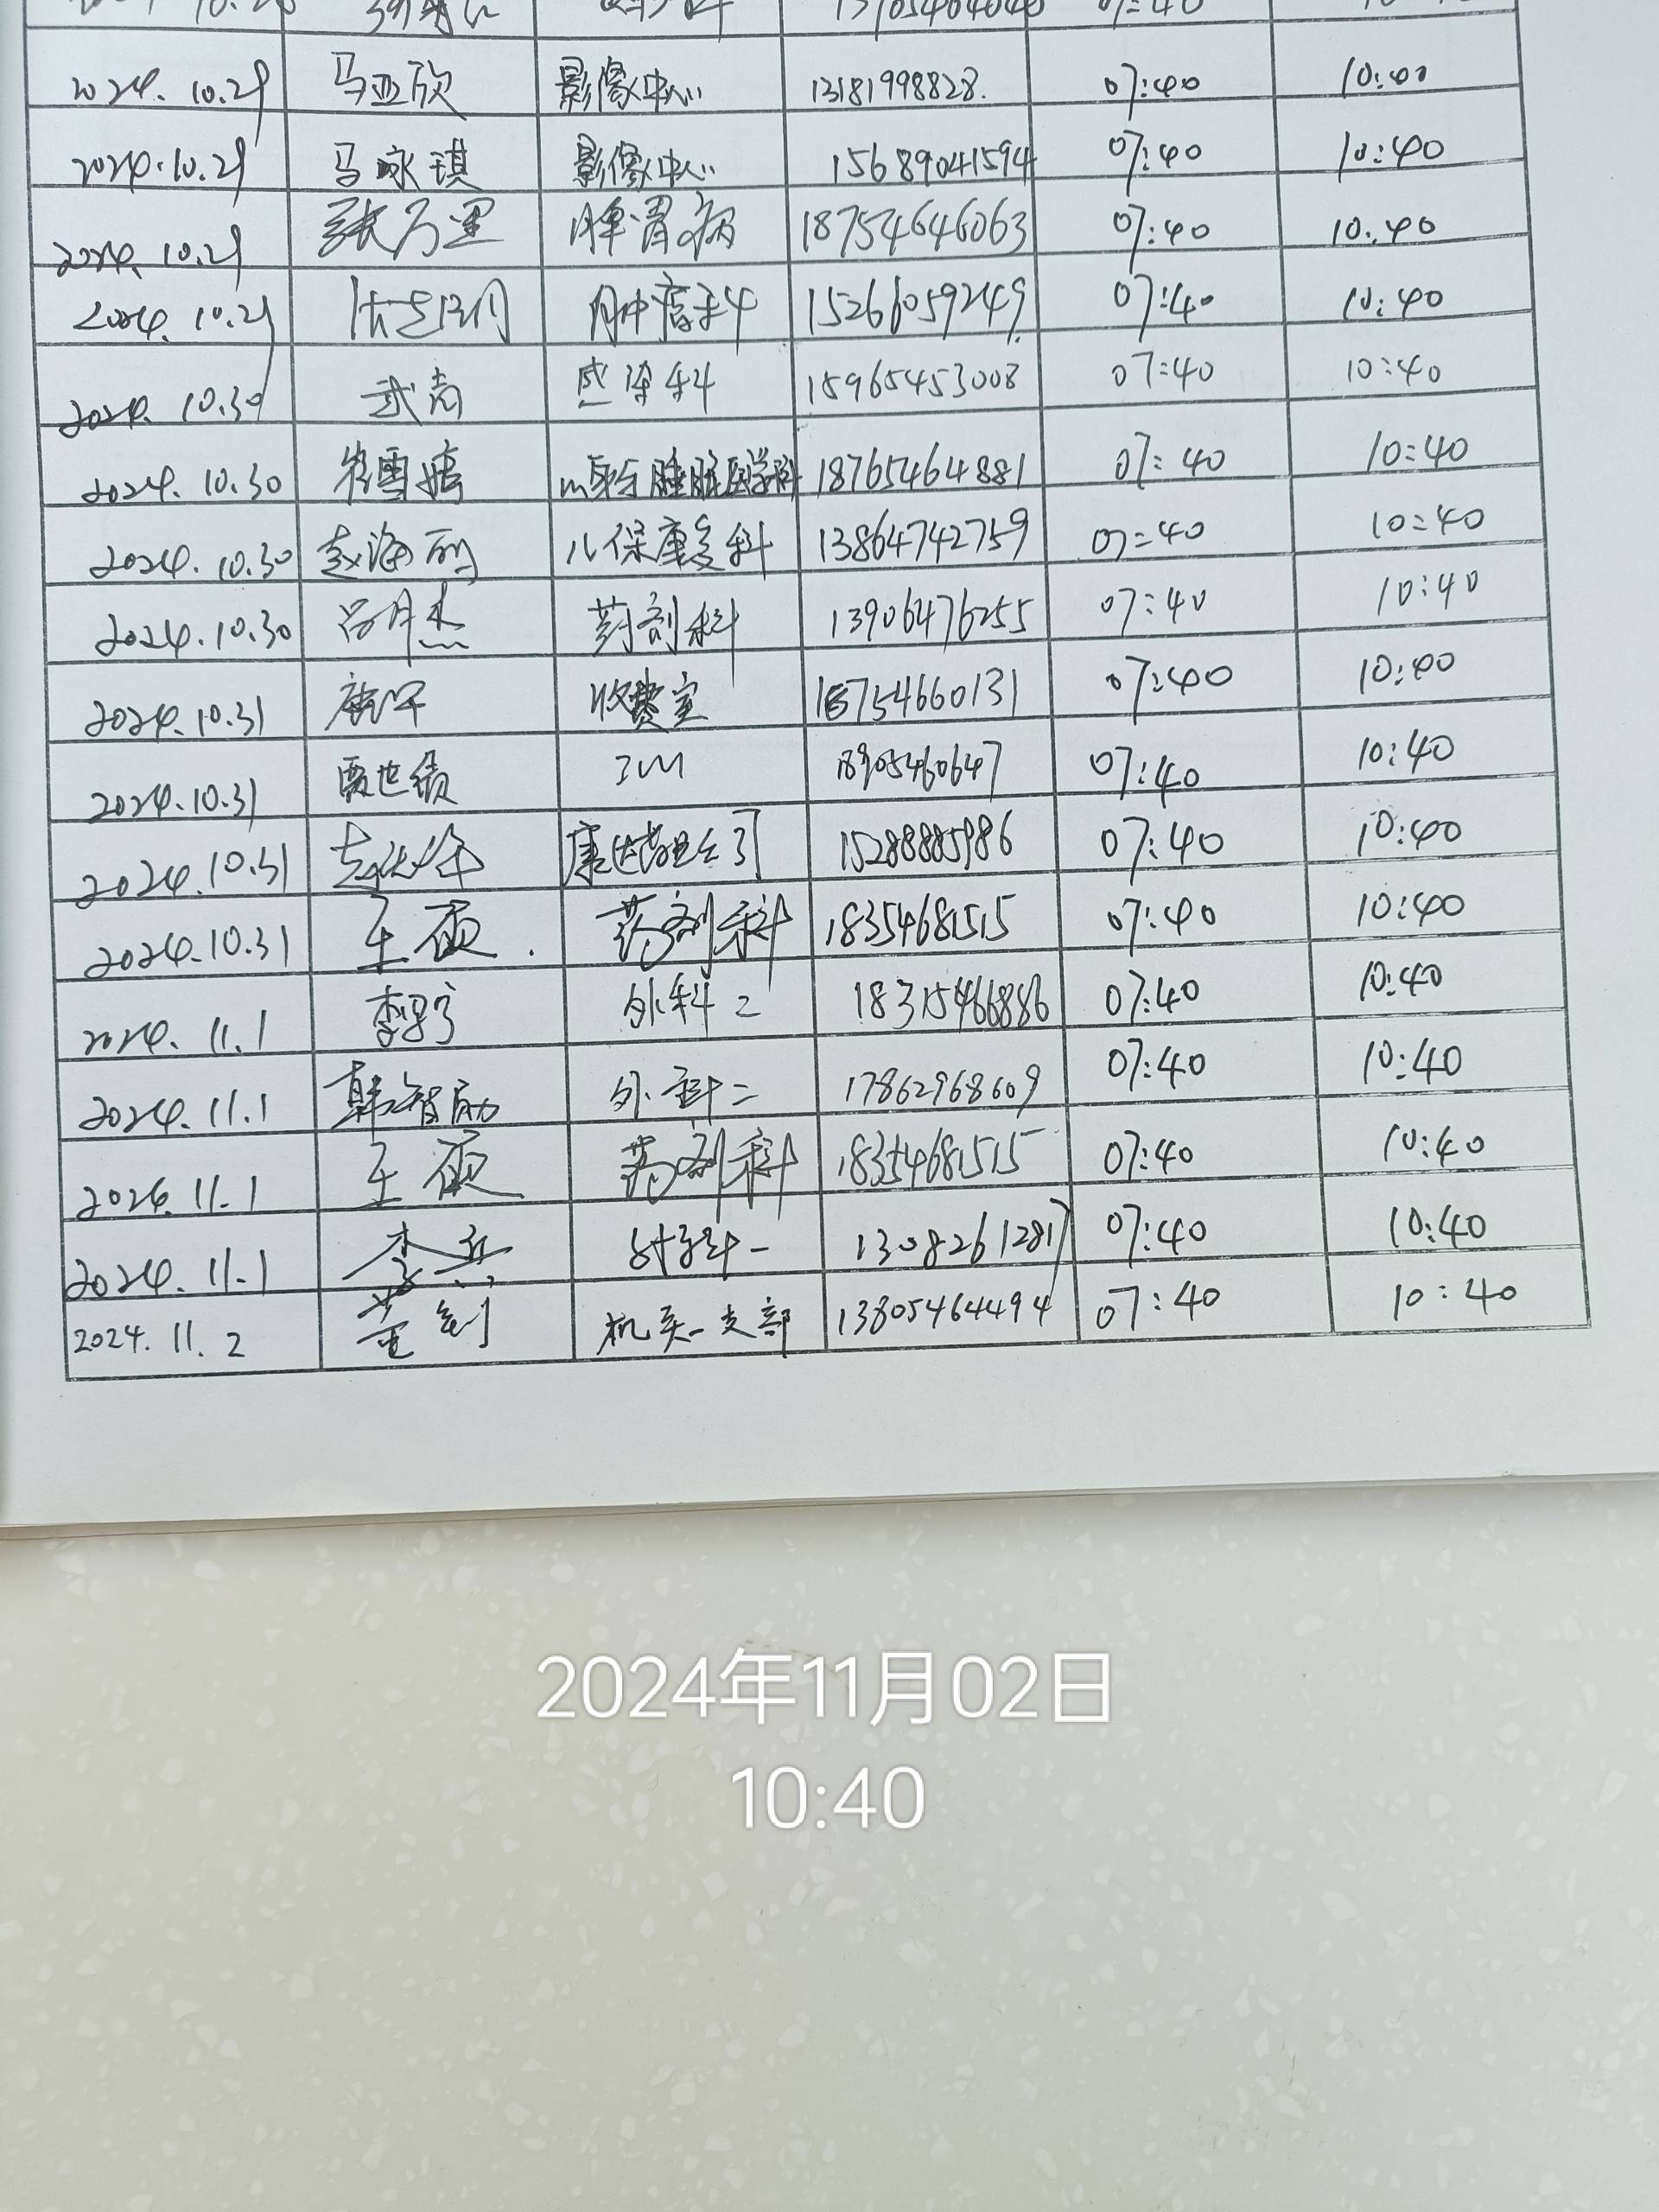 2024.10.29 马亚欣 影像中心 13181998828. 07:40 10:40
2024.10.29 马咏琪 影像中心 15689041594 07:40 10:40
2024.10.29 张万里 脾胃病 18754646063 07:40 10:40
2024.10.29 肿瘤科 15266059249 07:40 10:40
2024.10.30 武尚 感染科 15965453008 07:40 10:40
2024.10.30 崔雪 睡眠医学科 18765464881 07:40 10:40
2024.10.30 赵海丽 儿保康复科 13864742759 07:40 10:40
2024.10.30 吕月杰 药剂科 13906476255 07:40 10:40
2024.10.31 收费室 18754660131 07:40 10:40
2024.10.31 贾世绩 18905460647 07:40 10:40
2024.10.31 15288885986 07:40 10:40
2024.10.31 王 药剂科 18354681515 07:40 10:40
2024.11.1 李 外科二 18315466886 07:40 10:40
2024.11.1 韩智 外科二 17862968609 07:40 10:40
2024.11.1 王 药剂科 18354681515 07:40 10:40
2024.11.1 李 外科一 13082612817 07:40 10:40
2024.11.2 董剑 机关一支部 13805464494 07:40 10:40
2024年11月02日
10:40